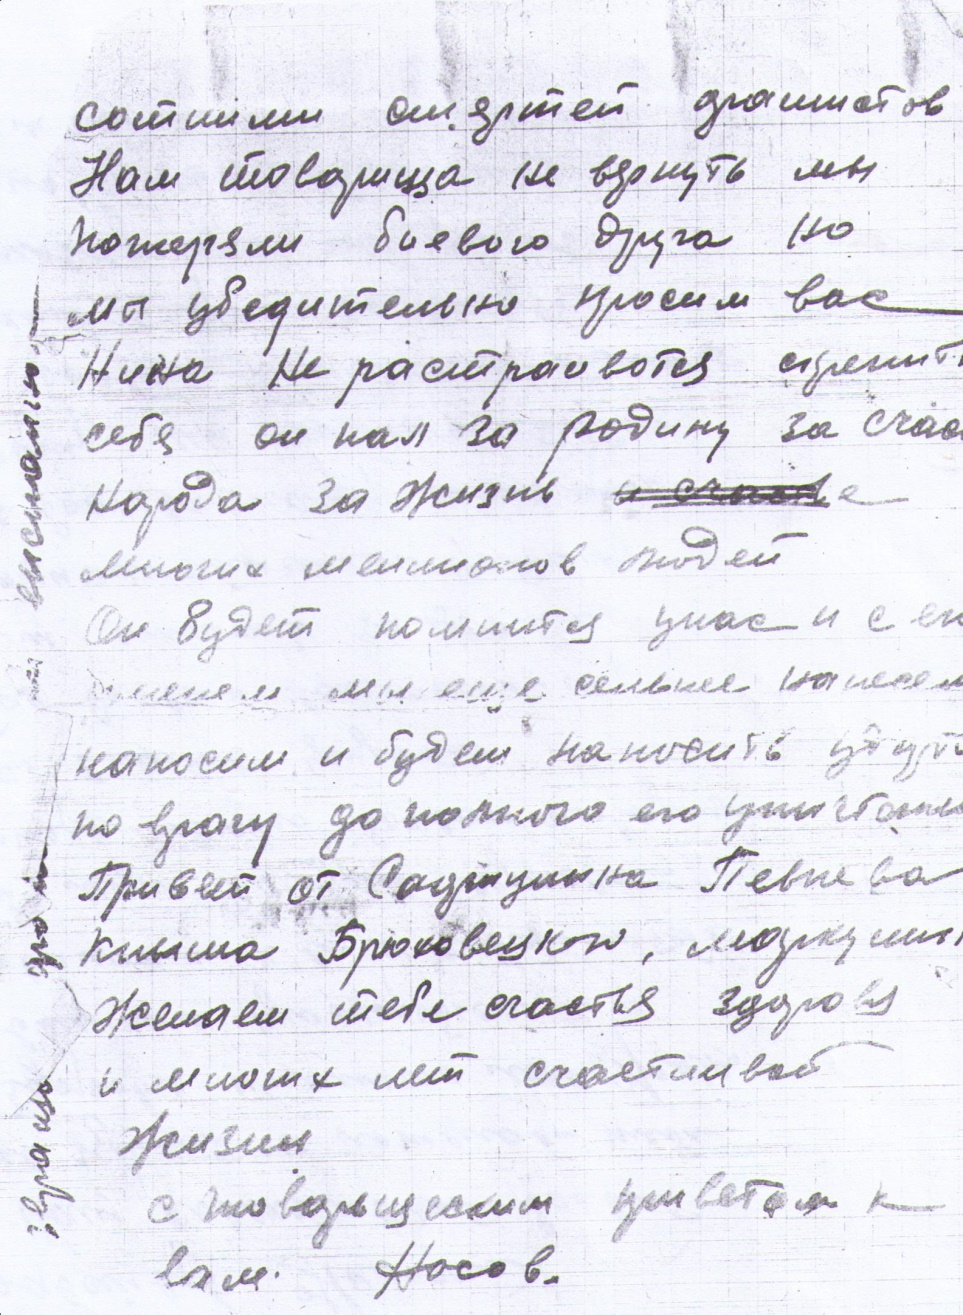 сотнями смертей фашистов
Нам товарища не вернуть мы
потеряли боевого друга но
мы убедительно просим вас
Нина Не растраиватся
себя он пал за родину за счас
Народа за Жизнь
многих меллионов людей
Он будет помнится унас и с ег
именем мы еще сельнее нанесем
наносим и будем наносить
по врагу до полного его уничтоже
Привет от Певнева
Брюховецкого,
Желаем тебе счастья здоровя
и многих лет счастливой
Жизни
с товарищеским приветом к
вам. Носов.
высылаю.